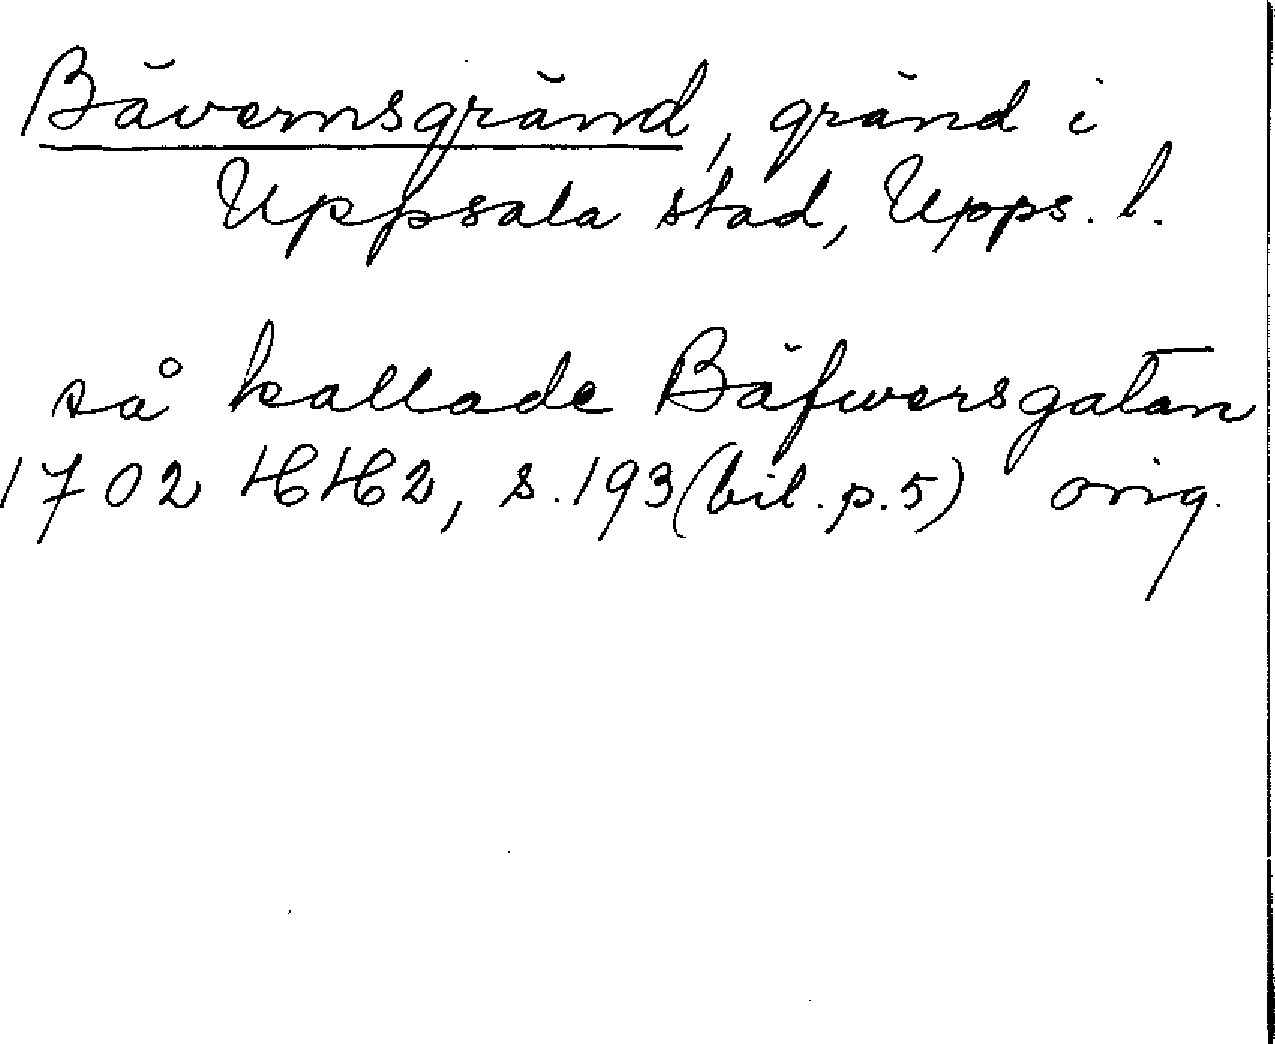 Bävernsgränd, gränd i
Uppsala stad, Upps. l.
så kallade Bäfwersgatan
1702 HH2, s. 193 (bil. p. 5) orig.